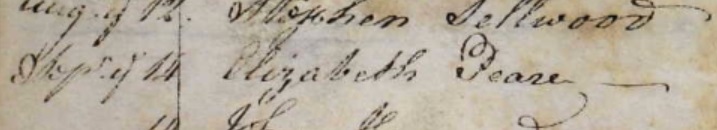 Aug. ye 12. Stephen Sellwood
Sepr. ye 14 Elizabeth Peare